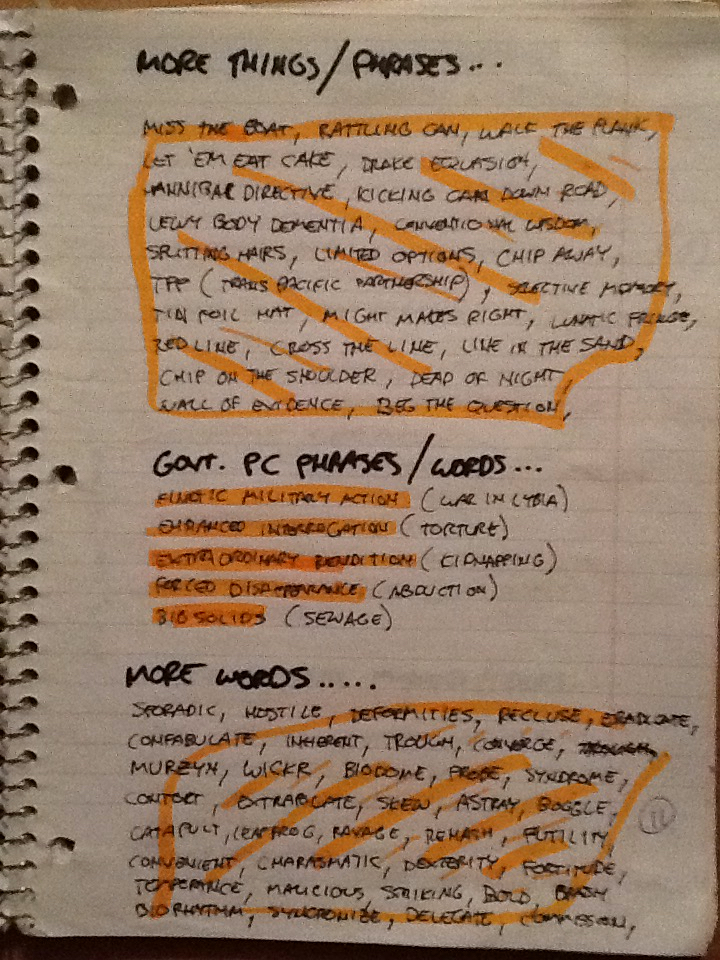 MORE THINGS/PHRASES...
MISS THE BOAT, RATTLING CAN, WALK THE PLANK,
LET 'EM EAT CAKE, DRAKE EQUASION,
HANNIBAL DIRECTIVE, KICKING CAN DOWN ROAD,
LEWY BODY DEMENTIA, CONVENTIONAL WISDOM,
SPLITTING HAIRS, LIMITED OPTIONS, CHIP AWAY,
TPP (TRANS PACIFIC PARTNERSHIP), SELECTIVE MEMORY,
TIN FOIL HAT, MIGHT MAKES RIGHT, LUNATIC FRINGE,
RED LINE, CROSS THE LINE, LINE IN THE SAND,
CHIP ON THE SHOULDER, DEAD OF NIGHT,
WALL OF EVIDENCE, BEG THE QUESTION,
GOVT. PC PHRASES/WORDS...
KINETIC MILITARY ACTION (WAR IN LYBIA)
ENHANCED INTERROGATION (TORTURE)
EXTRAORDINARY RENDITION (KIDNAPPING)
FORCED DISAPPEARANCE (ABDUCTION)
BIOSOLIDS (SEWAGE)
MORE WORDS.....
SPORADIC, HOSTILE, DEFORMITIES, RECLUSE, ERADICATE,
CONFABULATE, INHERENT, TROUGH, CONVERGE,
MURZYN, WICKR, BIODOME, PROBE, SYNDROME,
CONTORT, EXTRAPOLATE, SKEW, ASTRAY, BOGGLE,
CATAPULT, LEAPFROG, RAVAGE, REHASH, FUTILITY
11
CONVENIENT, CHARASMATIC, DEXTERITY, FORTITUDE,
TEMPERANCE, MALICIOUS, STRIKING, BOLD, BRASH
BIORHYTHM, SYNCRONIZE, DELEGATE,